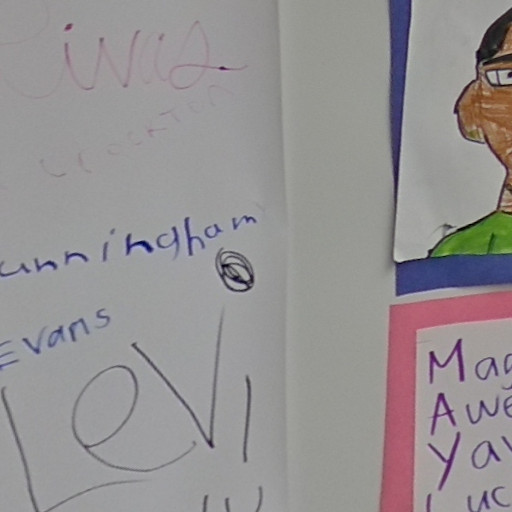 Rivas
unningham
Evans
Levi
Mag
Awe
Yav
Luc